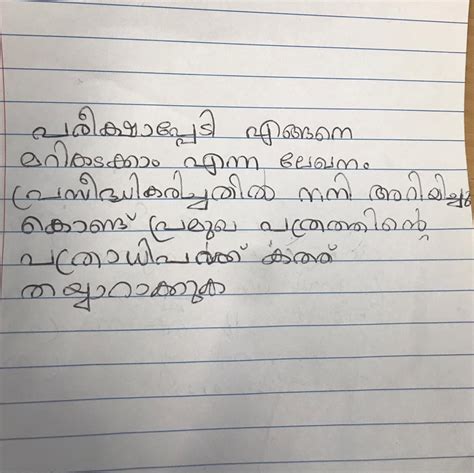 പരീക്ഷാപ്പേടി എങ്ങനെ
മറികടക്കാം എന്ന ലേഖനം
പ്രസിദ്ധീകരിച്ചതിൽ നന്ദി അറിയിച്ചു
കൊണ്ട് പ്രമുഖ പത്രത്തിന്റെ
പത്രാധിപർക്ക് കത്ത്
തയ്യാറാക്കുക